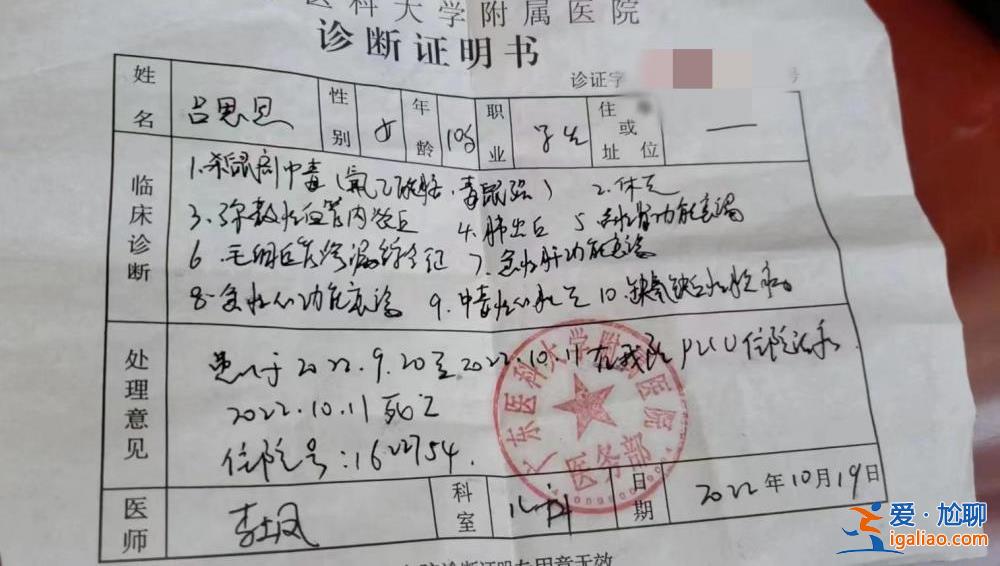 医科大学附属医院
诊断证明书
诊证字 号
姓名 吕思恩 性别 女 年龄 10岁 职业 学生 住址或单位 —
临床诊断
1.杀鼠剂中毒(氟乙酰胺、毒鼠强) 2.休克
3.弥散性血管内凝血 4.肺出血 5.急性肾功能衰竭
6.毛细血管渗漏综合征 7.急性肝功能衰竭
8.急性心功能衰竭 9.中毒性心肌炎 10.缺氧缺血性脑病
处理意见
患儿于2022.9.20至2022.10.11在我院PICU住院治疗.
2022.10.11死亡
住院号:1622754.
医师 科室 儿科 日期 2022年10月19日
广东医科大学附属医院
医务部
诊断证明专用章无效
爱·尬聊
igaliao.com